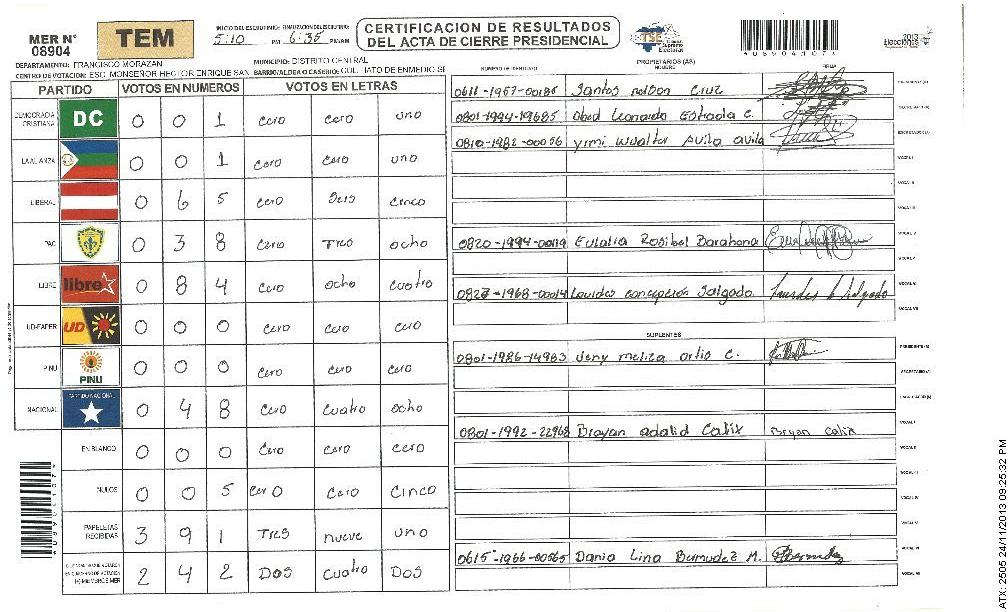 MER N° 08904
TEM
INICIO DEL ESCRUTINIO: 5:10 PM
FINALIZACION DEL ESCRUTINIO: 6:35 PM/AM
CERTIFICACION DE RESULTADOS
DEL ACTA DE CIERRE PRESIDENCIAL
TSE
Tribunal Supremo Electoral
2013
Elecciones
DEPARTAMENTO: FRANCISCO MORAZAN
MUNICIPIO: DISTRITO CENTRAL
CENTRO DE VOTACION: ESC. MONSEÑOR HECTOR ENRIQUE SAN
BARRIO/ALDEA O CASERIO:
PARTIDO VOTOS EN NUMEROS VOTOS EN LETRAS
DEMOCRACIA CRISTIANA DC 0 0 1 cero cero uno
LA ALIANZA 0 0 1 cero cero uno
LIBERAL 0 6 5 cero seis cinco
PAC 0 3 8 cero Tres ocho
LIBRE libre 0 8 4 cero ocho cuatro
UD-FAPER UD 0 0 0 cero cero cero
PINU PINU 0 0 0 cero cero cero
NACIONAL PARTIDO NACIONAL 0 4 8 cero cuatro ocho
EN BLANCO 0 0 0 cero cero cero
NULOS 0 0 5 cero cero cinco
PAPELETAS RECIBIDAS 3 9 1 Tres nueve uno
2 4 2 Dos cuatro Dos
NUMERO DE IDENTIDAD
PROPIETARIOS (AS)
NOMBRE
FIRMA
0611-1957-00186 Santos nelson Cruz
0801-1994-19685 obed Leonardo Estrada c.
0810-1982-00056 yimi Wualter Avila avila
VOCAL I
VOCAL II
VOCAL III
0820-1994-00119 Eulalia Rosibel Barahona
VOCAL V
Lourdes concepcion Salgado Lourdes c Salgado
VOCAL VII
SUPLENTES
0801-1986-14983 Jeny meliza ortio c. PRESIDENTE(A)
SECRETARIO(A)
0801-1992-22968 Brayan adalid Calix Bryan calix
VOCAL II
0615-1966-00565 Dania Lina Bermudez M.
ATX: 2505 24/11/2013 09:25:32 PM